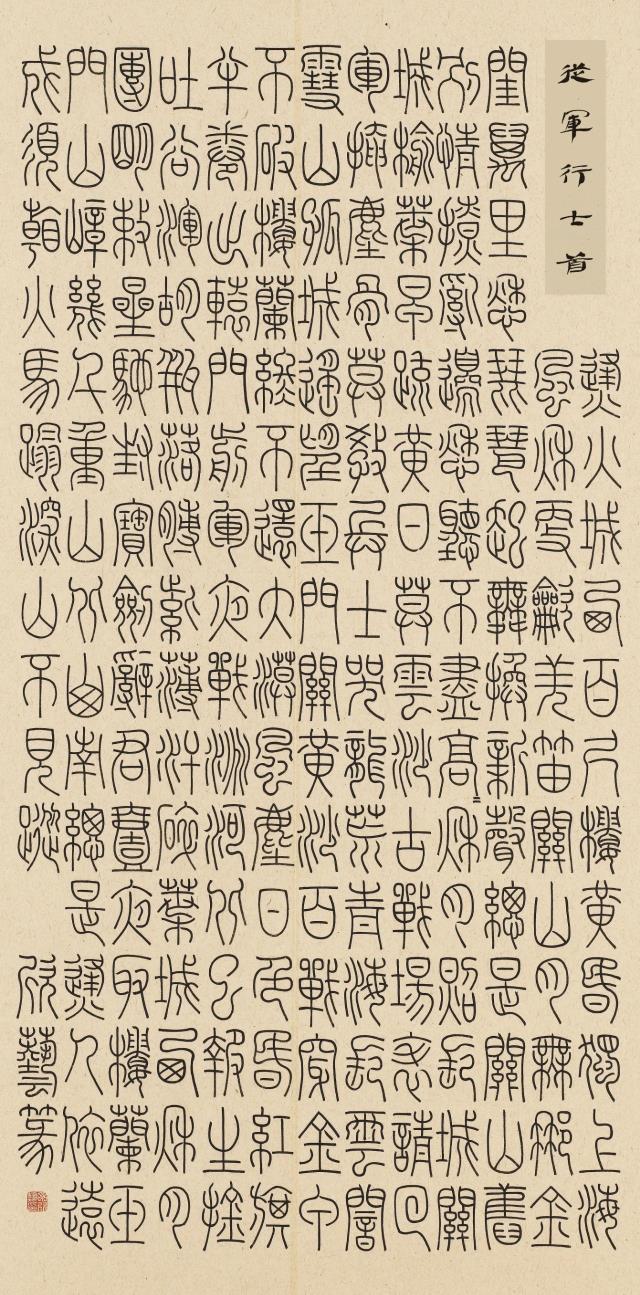 從軍行七首
烽火城西百尺樓黃昏獨上海
風秋更吹羌笛關山月無那金
閨萬里愁琵琶起舞換新聲總是關山舊
別情撩亂邊愁聽不盡高〻秋月照長城關
城榆葉早疏黃日莫雲沙古戰場表請回
軍掩塵骨莫教兵士哭龍荒青海長雲闇
雪山孤城遙望玉門關黃沙百戰穿金甲
不破樓蘭終不還大漠風塵日色昏紅旗
半卷出轅門前軍夜戰洮河北已報生擒
吐谷渾胡瓶落膊紫薄汗碎葉城西秋月
團明敕星馳封寶劍辭君壹夜取樓蘭玉
門山嶂幾千重山北山南總是烽人依遠
戍須看火馬踏深山不見蹤 欣藝篆